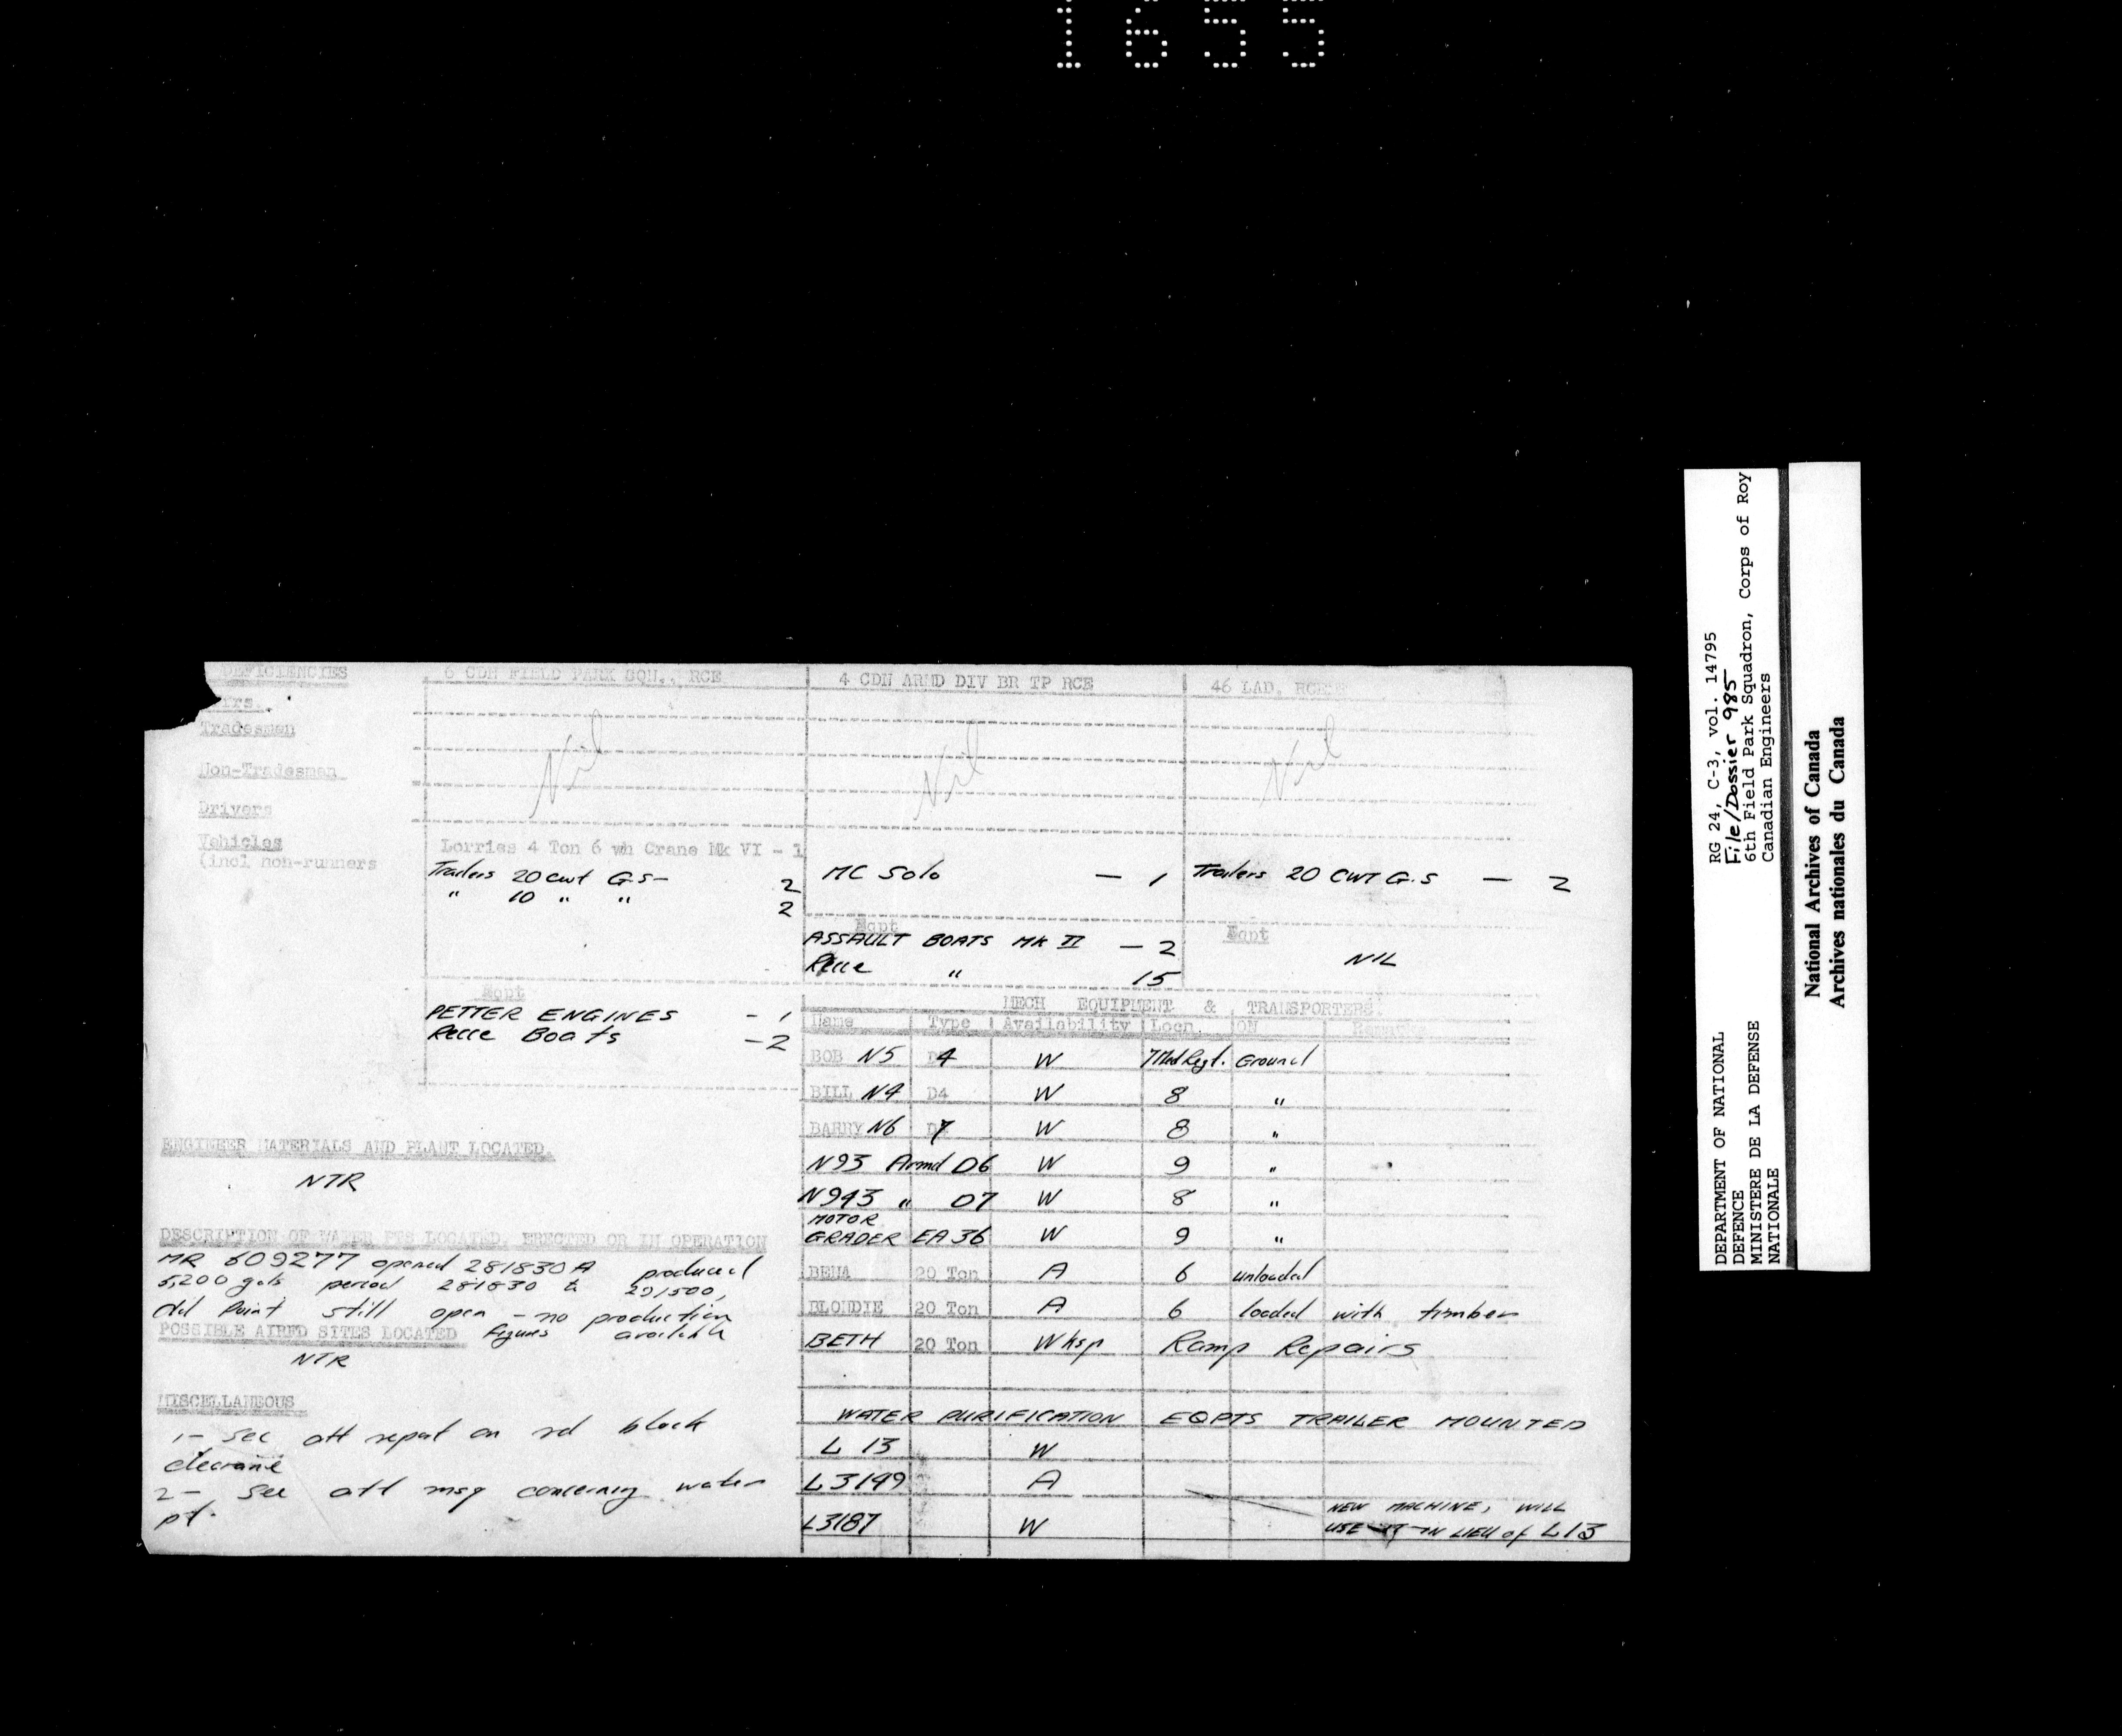 1655
DEFICIENCIES
6 CDN FIELD PARK SQN., RCE
4 CDN ARMD DIV BR TP RCE
46 LAD, RCEME
Tradesman
Nil
Nil
Nil
Non-Tradesman
Drivers
Vehicles
(incl non-runners
Lorries 4 Ton 6 wh Crane Mk VI - 1
Trailers 20 cwt G.S - 2
" 10 " " 2
MC Solo - 1
Trailers 20 CWT G.S - 2
Eqpt
ASSAULT BOATS MK II - 2
Recce " 15
Eqpt
NIL
Eqpt
PETTER ENGINES - 1
Recce Boats - 2
MECH EQUIPMENT & TRANSPORTERS
Name Type Availability Locn. ON Remarks
BOB N5 D4 W 7 Med Regt. Ground
BILL N4 D4 W 8 "
BARRY N6 D7 W 8 "
N93 Armd D6 W 9 "
N943 " D7 W 8 "
MOTOR
GRADER EA 36 W 9 "
20 Ton A 6 unloaded
BLONDIE 20 Ton A 6 loaded with timber
BETH 20 Ton Wksp Ramp Repairs
WATER PURIFICATION EQPTS TRAILER MOUNTED
L 13 W
L3199 A
L3187 W NEW MACHINE, WILL
USE IT IN LIEU of L13
ENGINEER MATERIALS AND PLANT LOCATED.
NTR
DESCRIPTION OF WATER PTS LOCATED, ERECTED OR IN OPERATION
MR 609277 opened 281830A produced
5,200 gals period 281830 to 291500,
Old Point still open - no production
figures available
POSSIBLE AIRFD SITES LOCATED
NTR
MISCELLANEOUS
1- See att report on rd block
clearance
2- See att msg concerning water
pt.
RG 24, C-3, vol. 14795
File/Dossier 985
6th Field Park Squadron, Corps of Roy
Canadian Engineers
DEPARTMENT OF NATIONAL
DEFENCE
MINISTERE DE LA DEFENSE
NATIONALE
National Archives of Canada
Archives nationales du Canada